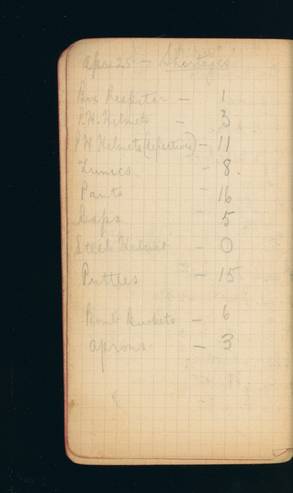 Apr 25 - Shortages
Box Respirator - 1
P.H. Helmets - 3
P H Helmets (defective) - 11
Tunics - 8.
Pants - 16
Caps - 5
Steel Helmet - 0
Puttees - 15
Bomb Buckets - 6
Aprons - 3